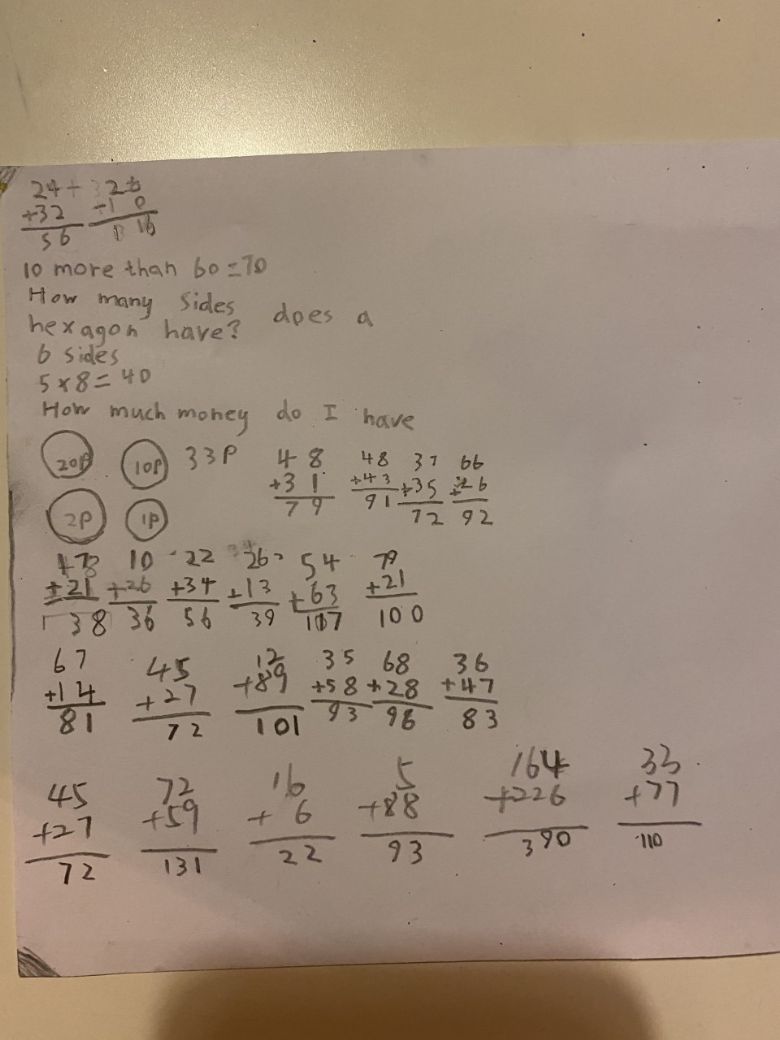 24 + 26
+32 +10
56 16
10 more than 60=70
How many sides does a
hexagon have?
6 sides
5×8=40
How much money do I have
20P 10P 33P 48 48 37 66
+31 +43 +35 +26
2P 1P 79 91 72 92
10 22 26 54 79
+21 +26 +34 +13 +63 +21
38 36 56 39 107 100
67 45 12 35 68 36
+14 +27 +89 +58 +28 +47
81 72 101 93 96 83
45 72 16 5 164 33
+27 +59 + 6 +88 +226 +77
72 131 22 93 390 110